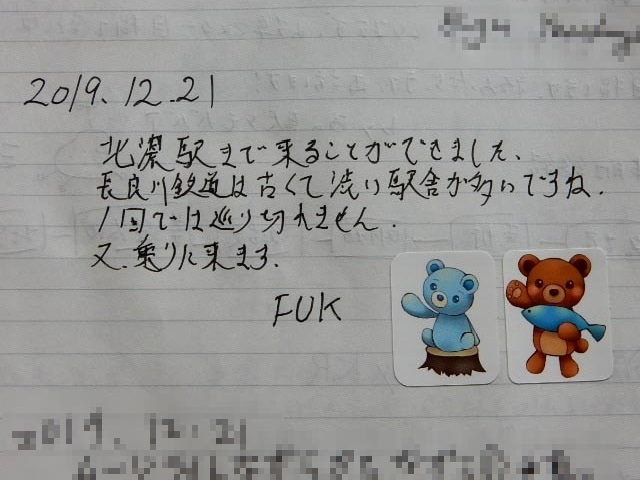 2019.12.21
北濃駅まで来ることができました、
長良川鉄道は古くて渋い駅舎が多いですね.
1回では巡り切れません.
又、乗りに来ます.
FUK
2019.12.21